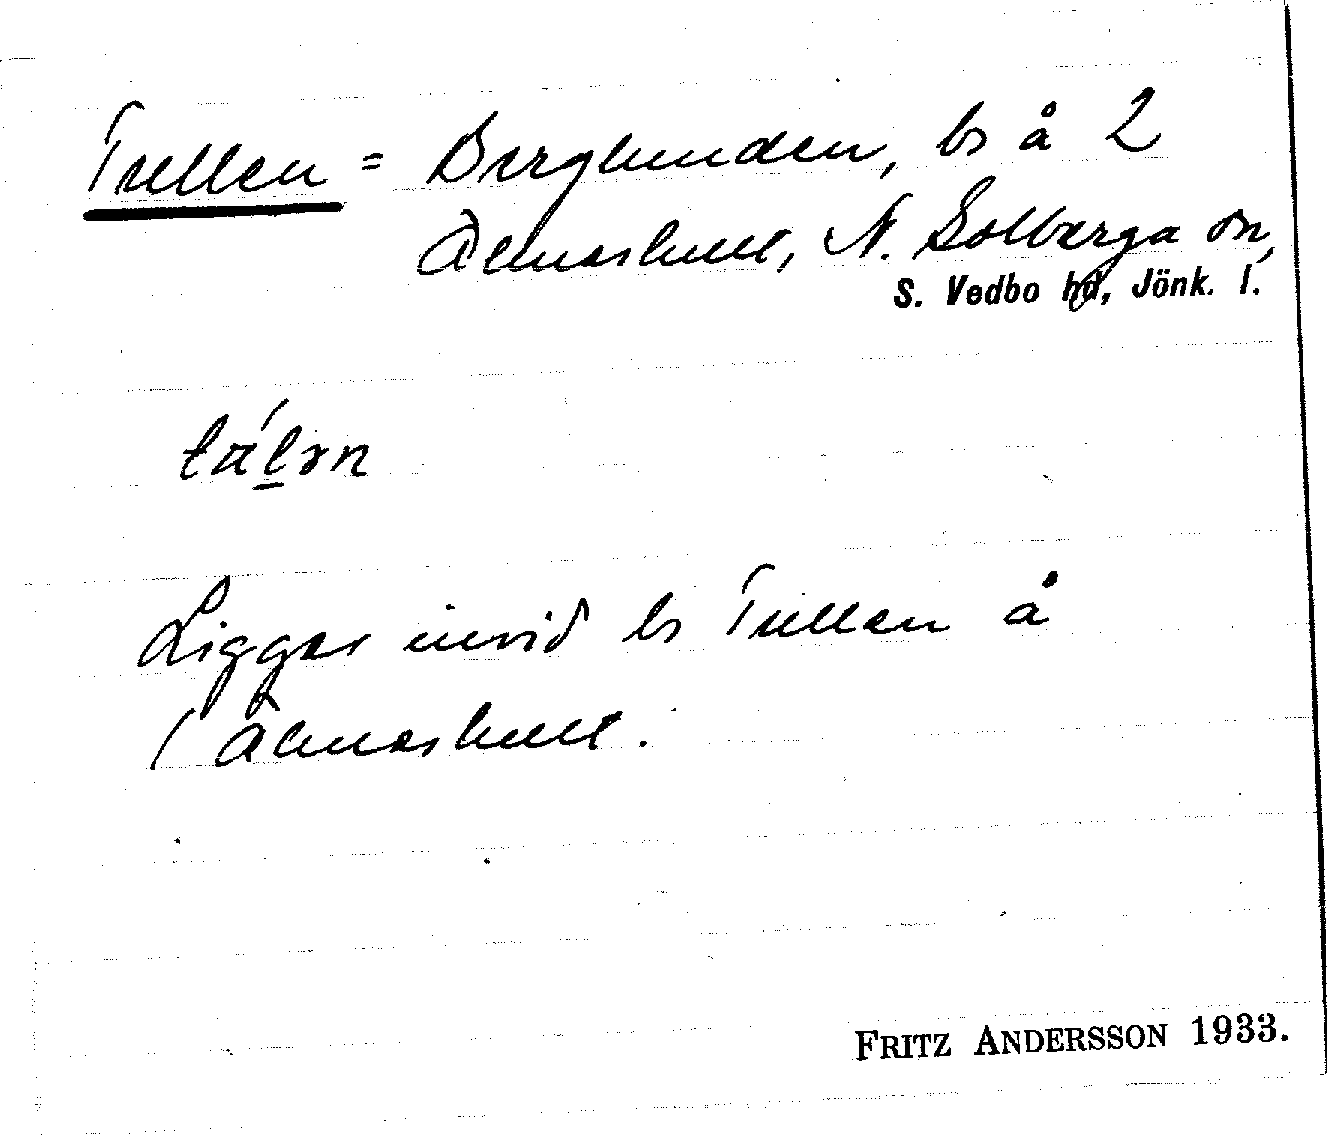 Tullen = Berglunden, ls å 2
Älmashult, N. Solberga sn,
S. Vedbo hd, Jönk. l.
Ligger invid ls Tullen å
Älmashult.
FRITZ ANDERSSON 1933.